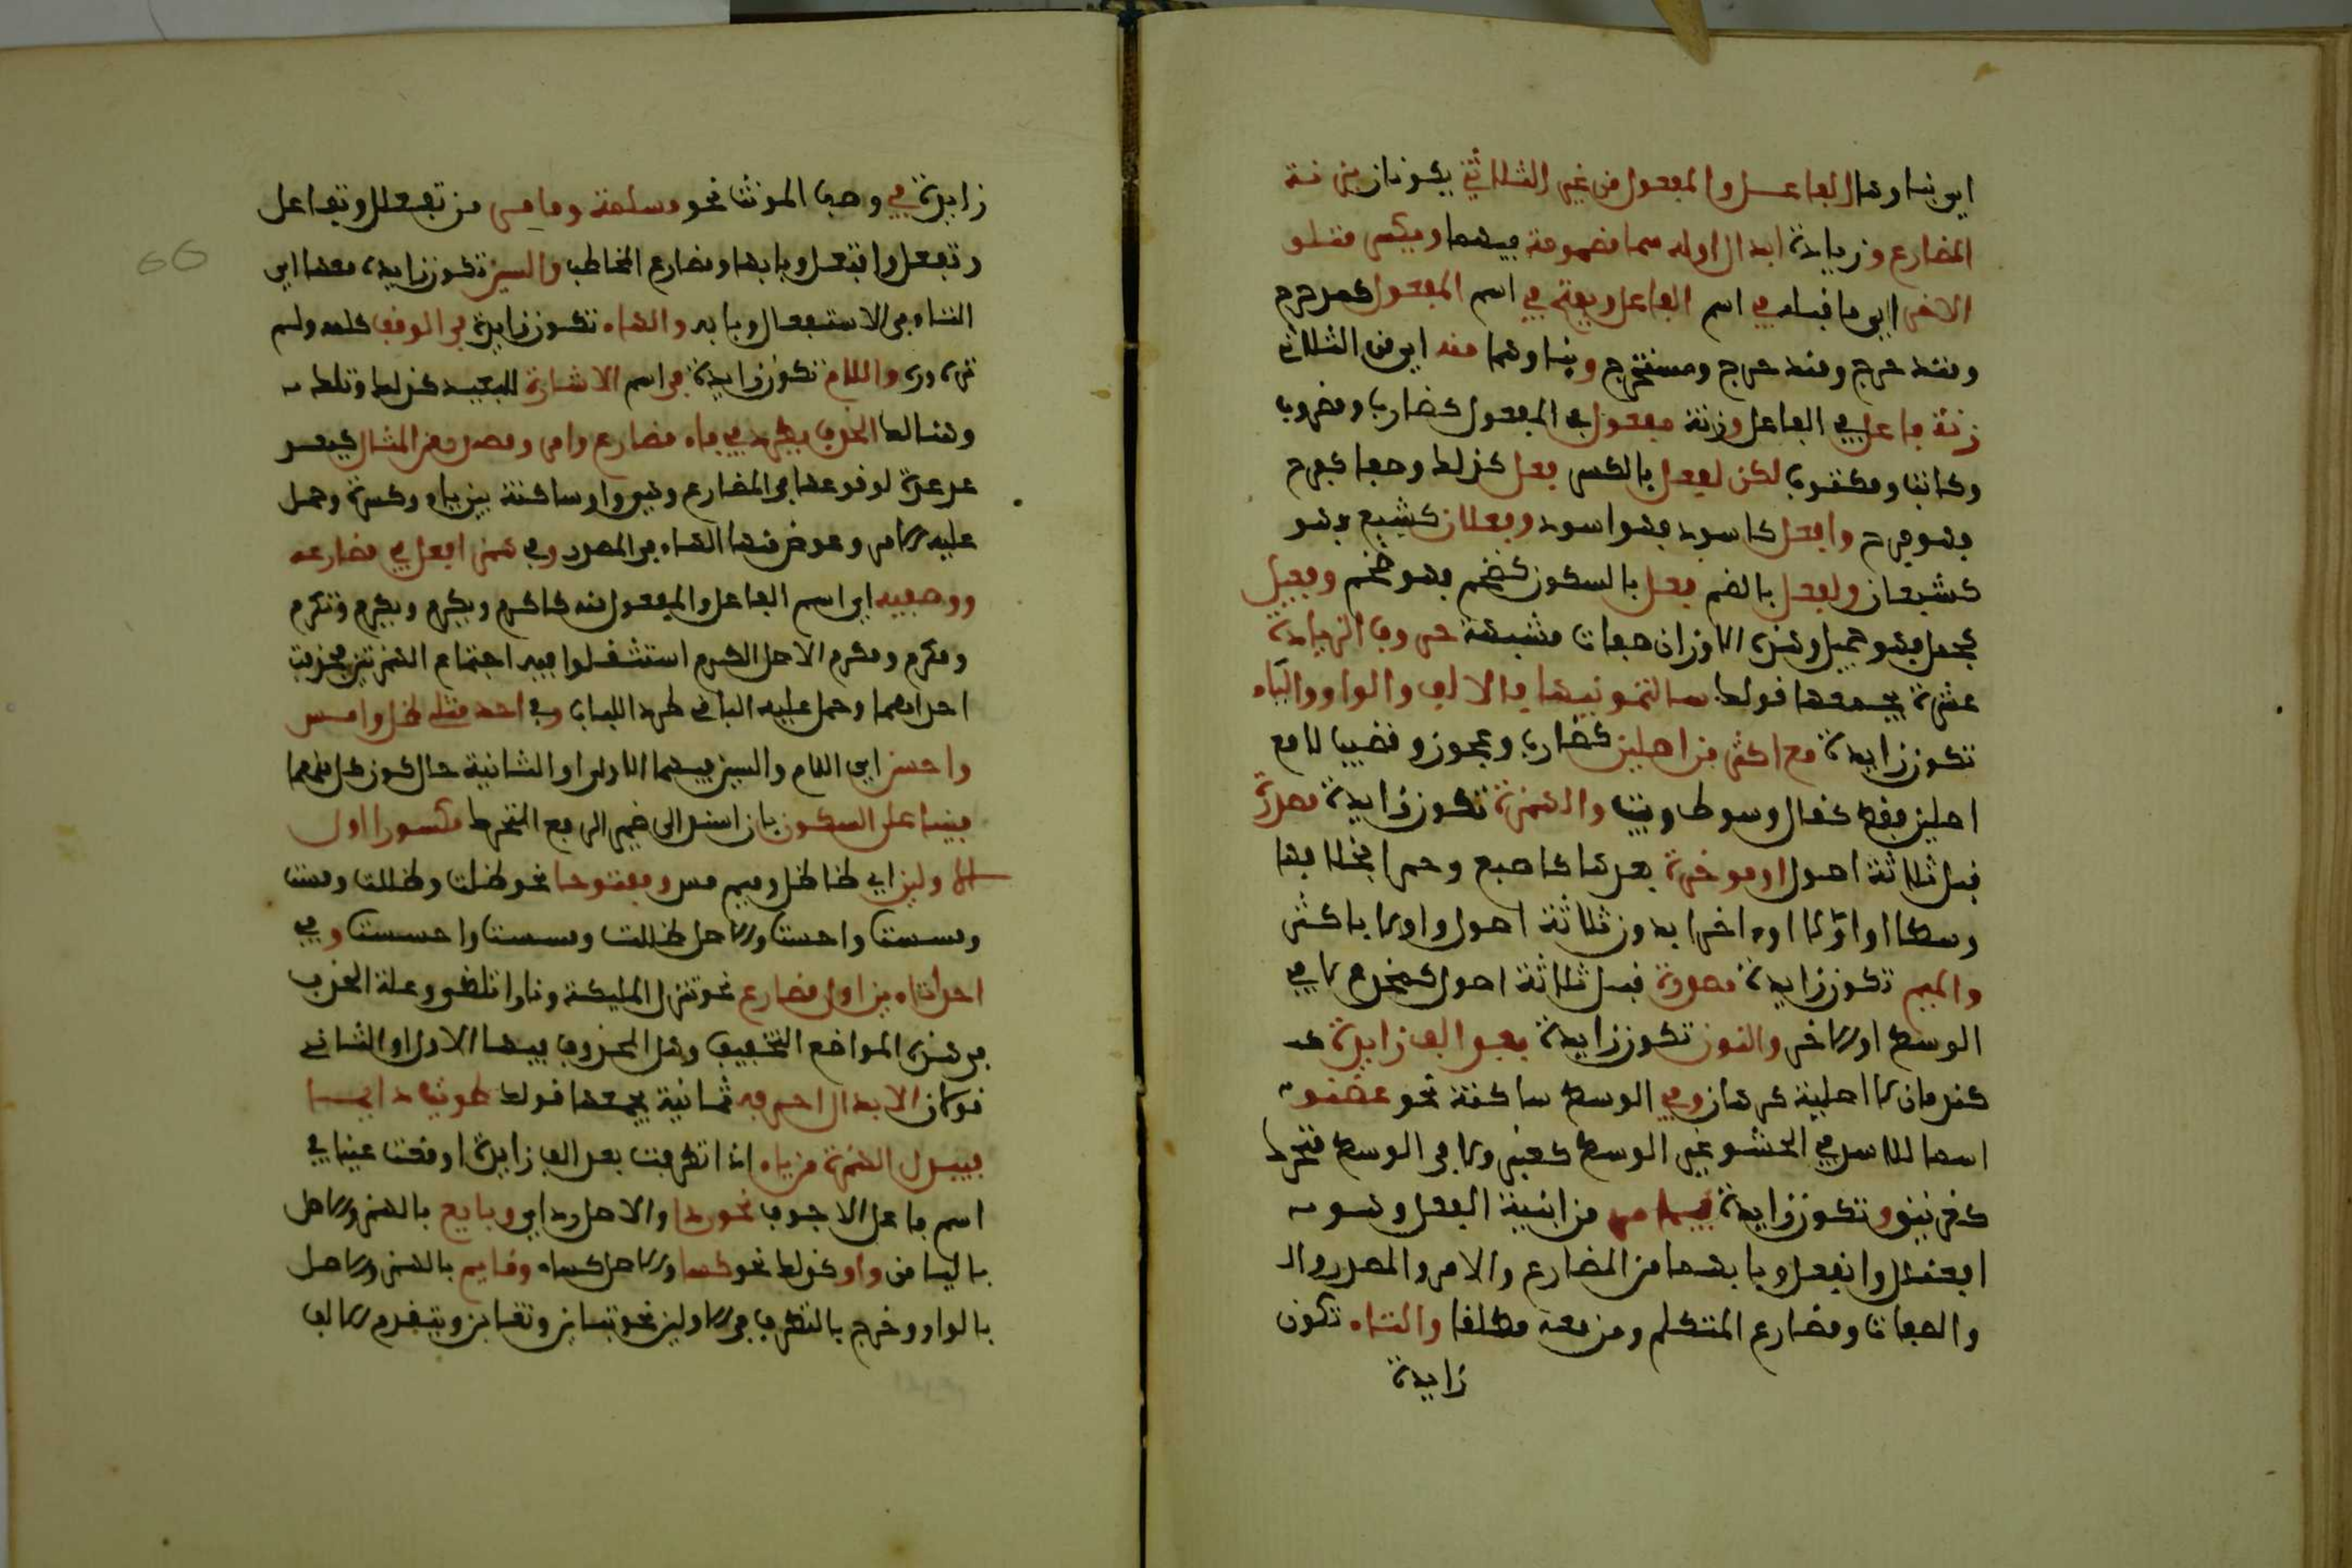 اي بناوها الفاعل والمفعول من غير الثلاثي يكونان بزنة
المضارع وزيادة ابدال اوله ميما مضمومة فيهما ويكسر متلو
الاخر اي ما قبله في اسم الفاعل ويفتح في اسم المفعول كمدحرج
ومتدحرج ومتدحرج ومستخرج وبناوهما منه اي من الثلاثي
زنة فاعل في الفاعل وزنة مفعول في المفعول كضارب ومضروب
وكاتب ومكتوب لكن لفعل بالكسر فعل كذلك وصفا كفرح
فهو فرح وافعل كاسود فهو اسود وفعلان كشبع فهو
كشبعان ولفعل بالضم فعل بالسكون كضخم فهو ضخم وفعيل
كجمل فهو جميل وهذه الاوزان صفات مشبهة حروف الزيادة
عشرة يجمعها قولك سالتمونيها فالالف والواو والياء
تكون زايدة مع اكثر من اصلين كضارب وعجوز وقضيب لا مع
اصلين فقط كقال وسوط وبيت والهمزة تكون زايدة مصدرة
قبل ثلاثة اصول او موخرة بعدها كاصبع وحمرا بخلافها
وسطا او اولا او اخرا بدون ثلاثة اصول واولا باكثر
والميم تكون زايدة مصدرة قبل ثلاثة اصول كمخدع لا في
الوسط او الاخر والنون تكون زايدة بعد الف زايدة
كندمان لا اصلية كرهان وفي الوسط ساكنة نحو غضنفر
اسما للاسد في الحشو غير الوسط كعنبر ولا في الوسط متحركا
كغرنيق وتكون زايدة فيما مر من ابنية الفعل وهو
افعنلل وانفعل وبابهما من المضارع والامر والمصدر
والصفات ومضارع المتكلم ومن معه مطلقا والتاء تكون
زايدة
زايدة في وصف المونث نحو مسلمة وما مر من تفعلل وتفاعل
وتفعل وافتعل وبابها ومضارع المخاطب والسين تكون زايدة معها اي
التاء في الاستفعال وبابه والهاء تكون زايدة في الوقف كلمه ولم
تره وره واللام تكون زايدة في اسم الاشارة للبعيد كذلك وتلك
وهنالك الحذف يطرد في فاء مضارع وامر ومصدر من المثال كيعد
عد عدة لوقوعها في المضارع وهي واو ساكنة بين ياء وكسرة وحمل
عليه الامر وعوض منها الهاء في المصدر وفي همز افعل في مضارعه
ووصفيه اي اسم الفاعل والمفعول منه كاكرم ويكرم ونكرم وتكرم
ومكرم ومكرم الاصل اكرم استثقلوا فيه اجتماع الهمزتين فحذفت
احداهما وحمل عليه الباقي طردا للباب وفي احد مثلي ظل وامس
واحس اي اللام والسين فيهما الاولى او الثانية حال كون كل منهما
مبنيا على السكون بان اسند الى ضمير الرفع المتحرك مكسورا اول
الاولين اي ظا ظل وميم مس ومفتوحا نحو ظلت وظللت ومست
ومسست واحست والاصل ظللت ومسست واحسست وفي
احد تاءي من اول مضارع نحو تنزل المليكة ونارا تلظى وعلة الحذف
في هذه المواضع التخفيف وهل المحذوف فيها الاول او الثاني
قولان الابدال احرفه ثمانية يجمعها قولك طويت دايما
فيبدل الهمزة من ياء اذا تطرفت بعد الف زايدة او وقعت عينا في
اسم فاعل الاجوف نحو ردا والاصل رداي وبايع بالهمز والاصل
بالياء من واو كذلك نحو كساء والاصل كساو وقايم بالهمز والاصل
بالواو وخرج بالتطرف في الاولين نحو تباين وتعاين وبتقدم الالف